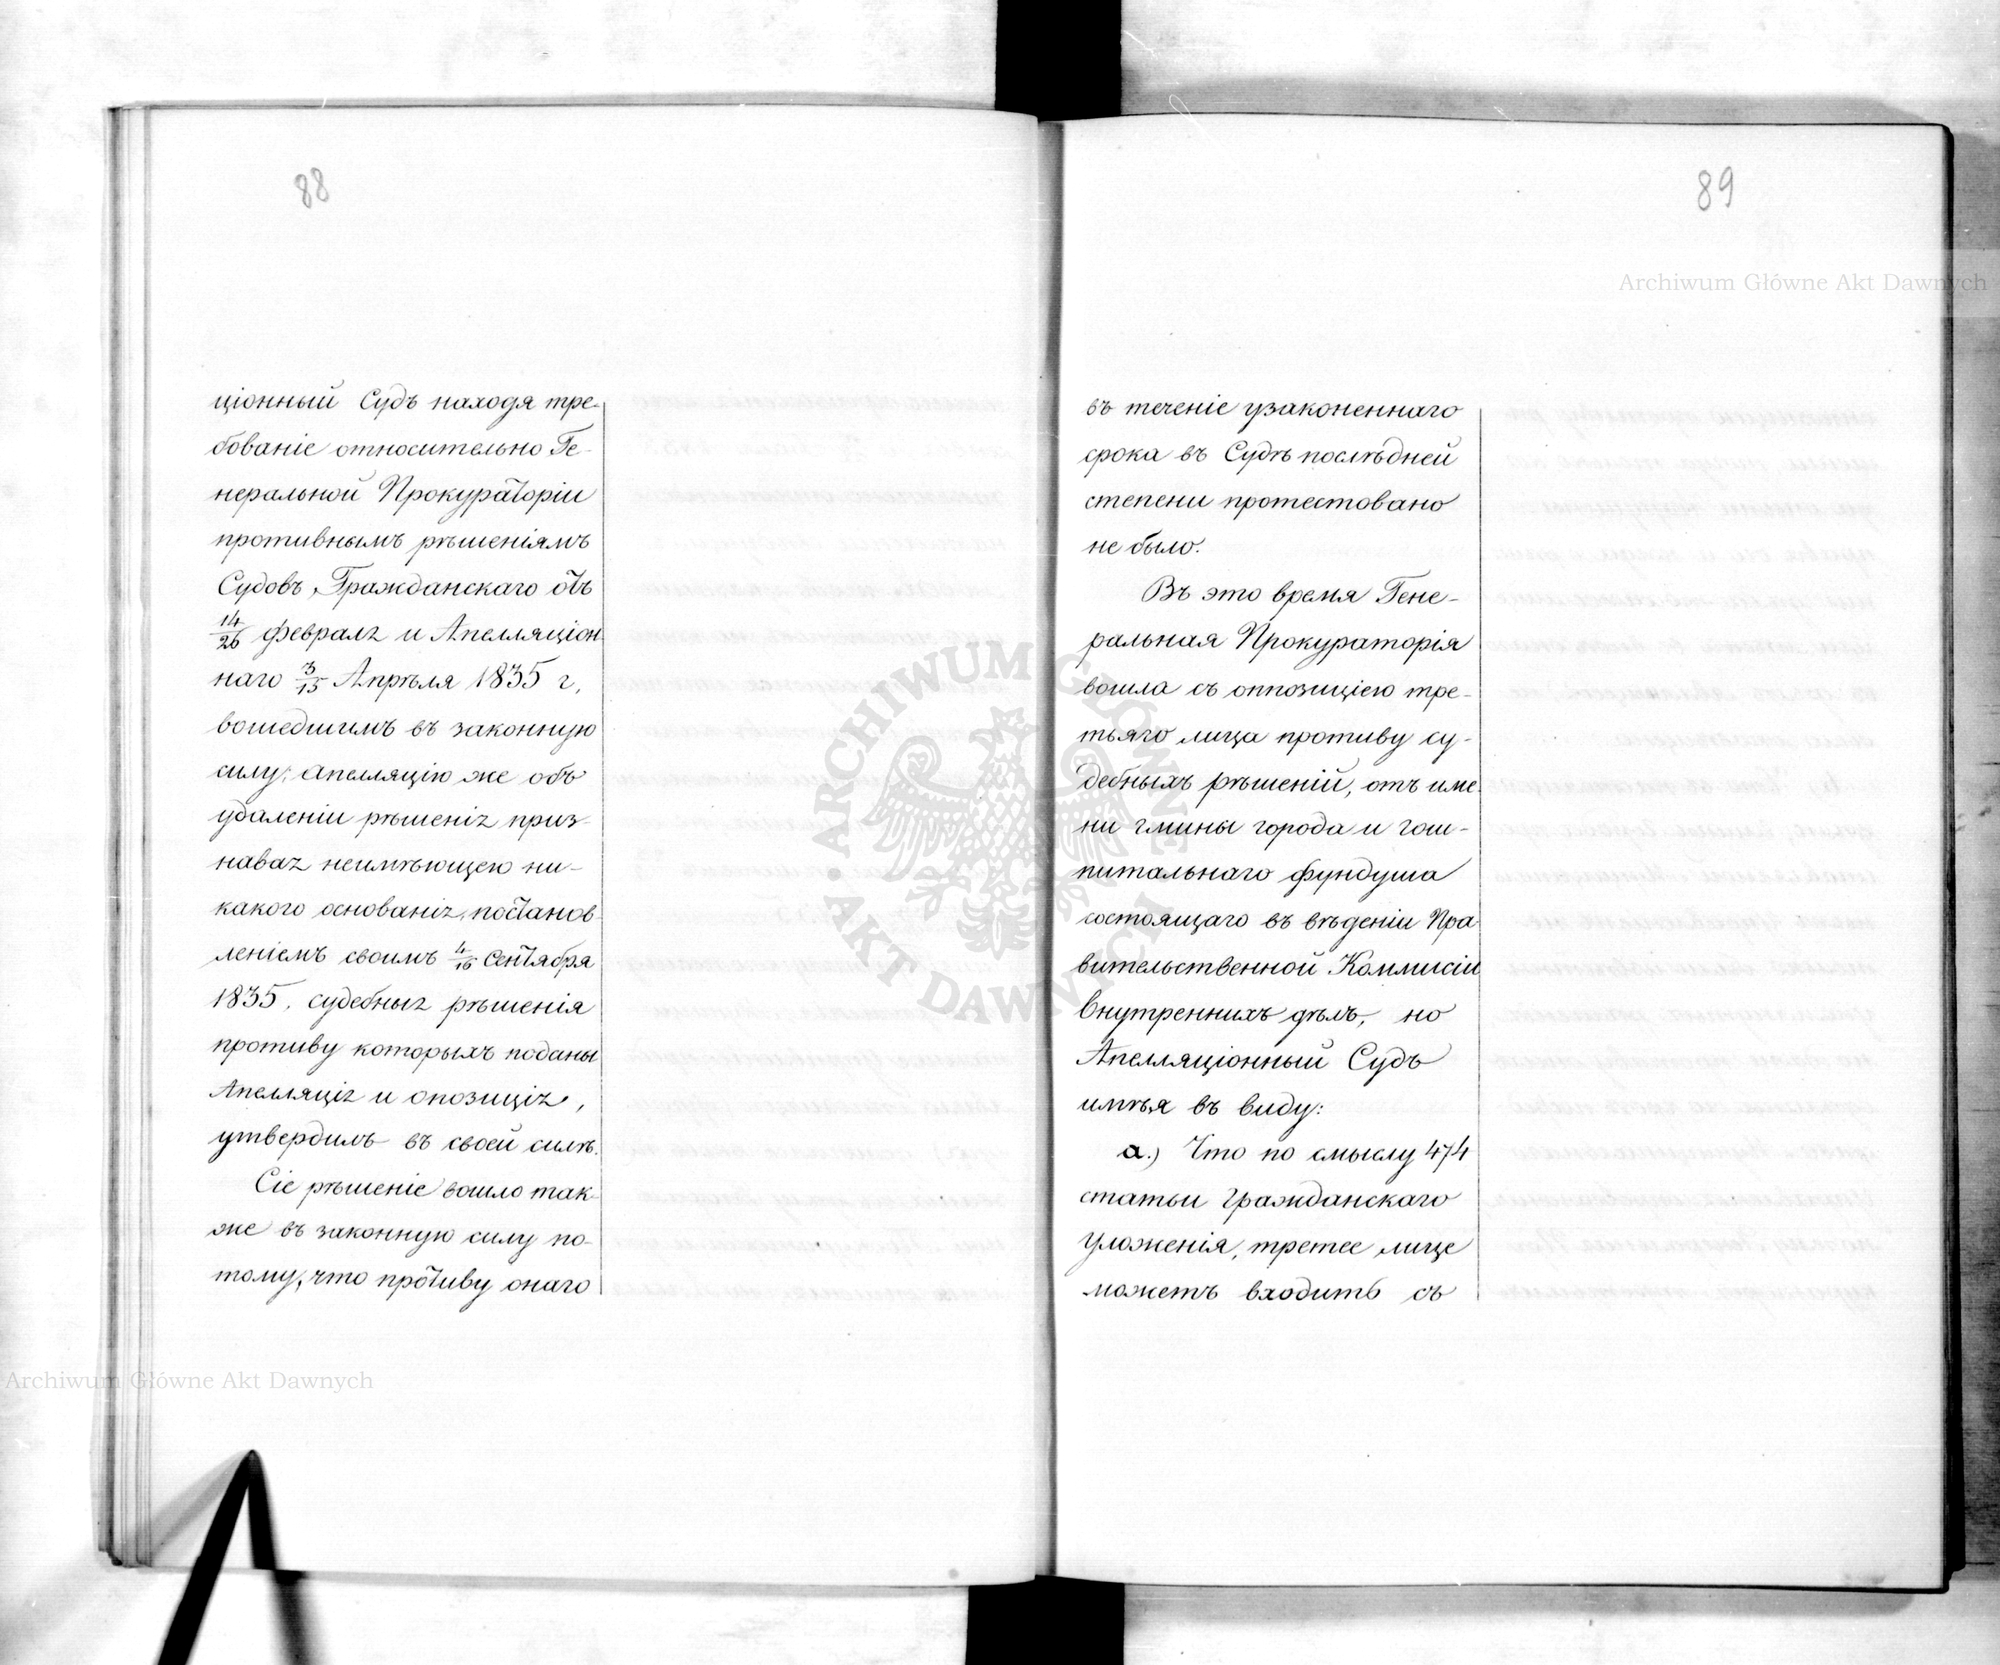 88
ціонный Судъ находя тре-
бованіе относительно Ге-
неральной Прокураторіи
противнымъ рѣшеніямъ
Судовъ, Гражданскаго отъ
14/26 февраля и Апелляціон
наго 3/15 Апрѣля 1835 г,
вошедшимъ въ законную
силу; апелляцію же объ
удаленіи рѣшенія приз-
навая неимѣющею ни-
какого основанія, постанов-
леніемъ своимъ 4/16 Сентября
1835. судебныя рѣшенія
противу которыхъ поданы
Апелляція и опозиція,
утвердилъ въ своей силѣ.
Сіе рѣшеніе вошло так-
же въ законную силу по-
тому, что противу онаго
89
въ теченіе узаконеннаго
срока въ Судѣ послѣдней
степени протестовано
не было.
Въ это время Гене-
ральная Прокураторія
вошла съ оппозиціею тре-
тьяго лица противу су-
дебныхъ рѣшеній, отъ име-
ни гмины города и гош-
питальнаго фундуша
состоящаго въ вѣденіи Пра
вительственной Коммисіи
Внутреннихъ дѣлъ, но
Апелляціонный Судъ
имѣя въ виду:
а.) Что по смыслу 474
статьи Гражданскаго
Уложенія, третее лице
можетъ входить съ
Archiwum Główne Akt Dawnych
Archiwum Główne Akt Dawnych
ARCHIWUM GŁÓWNE AKT DAWNYCH